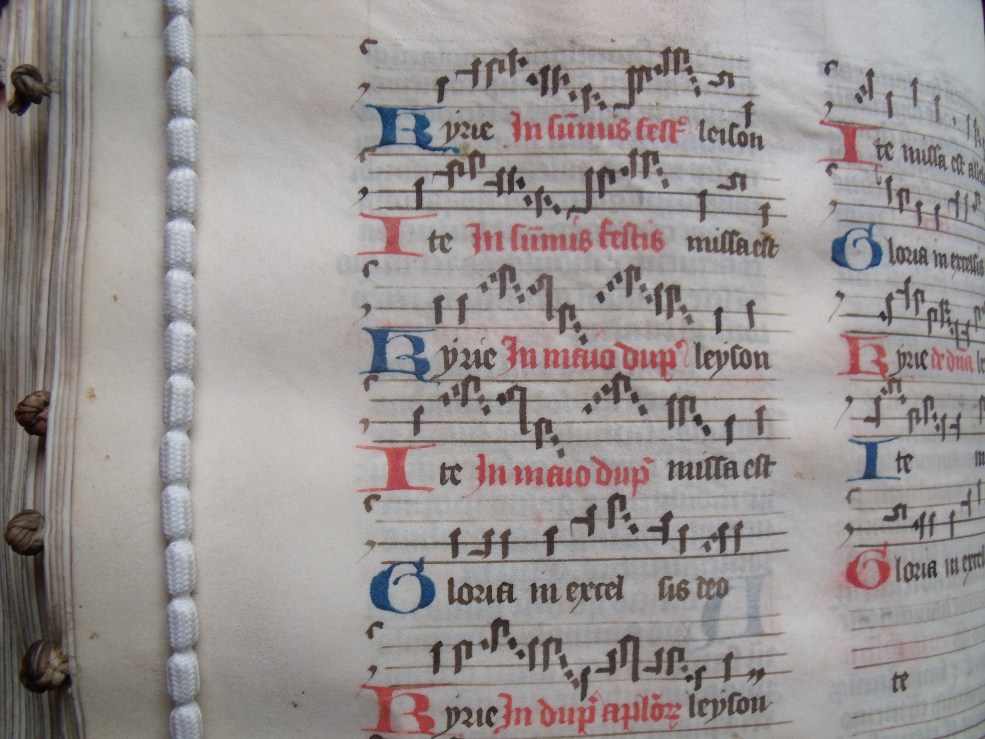 Kyrie In sūmis fest᷒ leison
Ite In sūmis festis missa est
Kyrie In maio dup᷒ leyson
Ite In maio dup᷒ missa est
Gloria in excel sis deo
Kyrie In dup᷒ leyson
Ite missa est
Gloria in excelsis
Kyrie de dn̄a
Ite
Gloria in
te